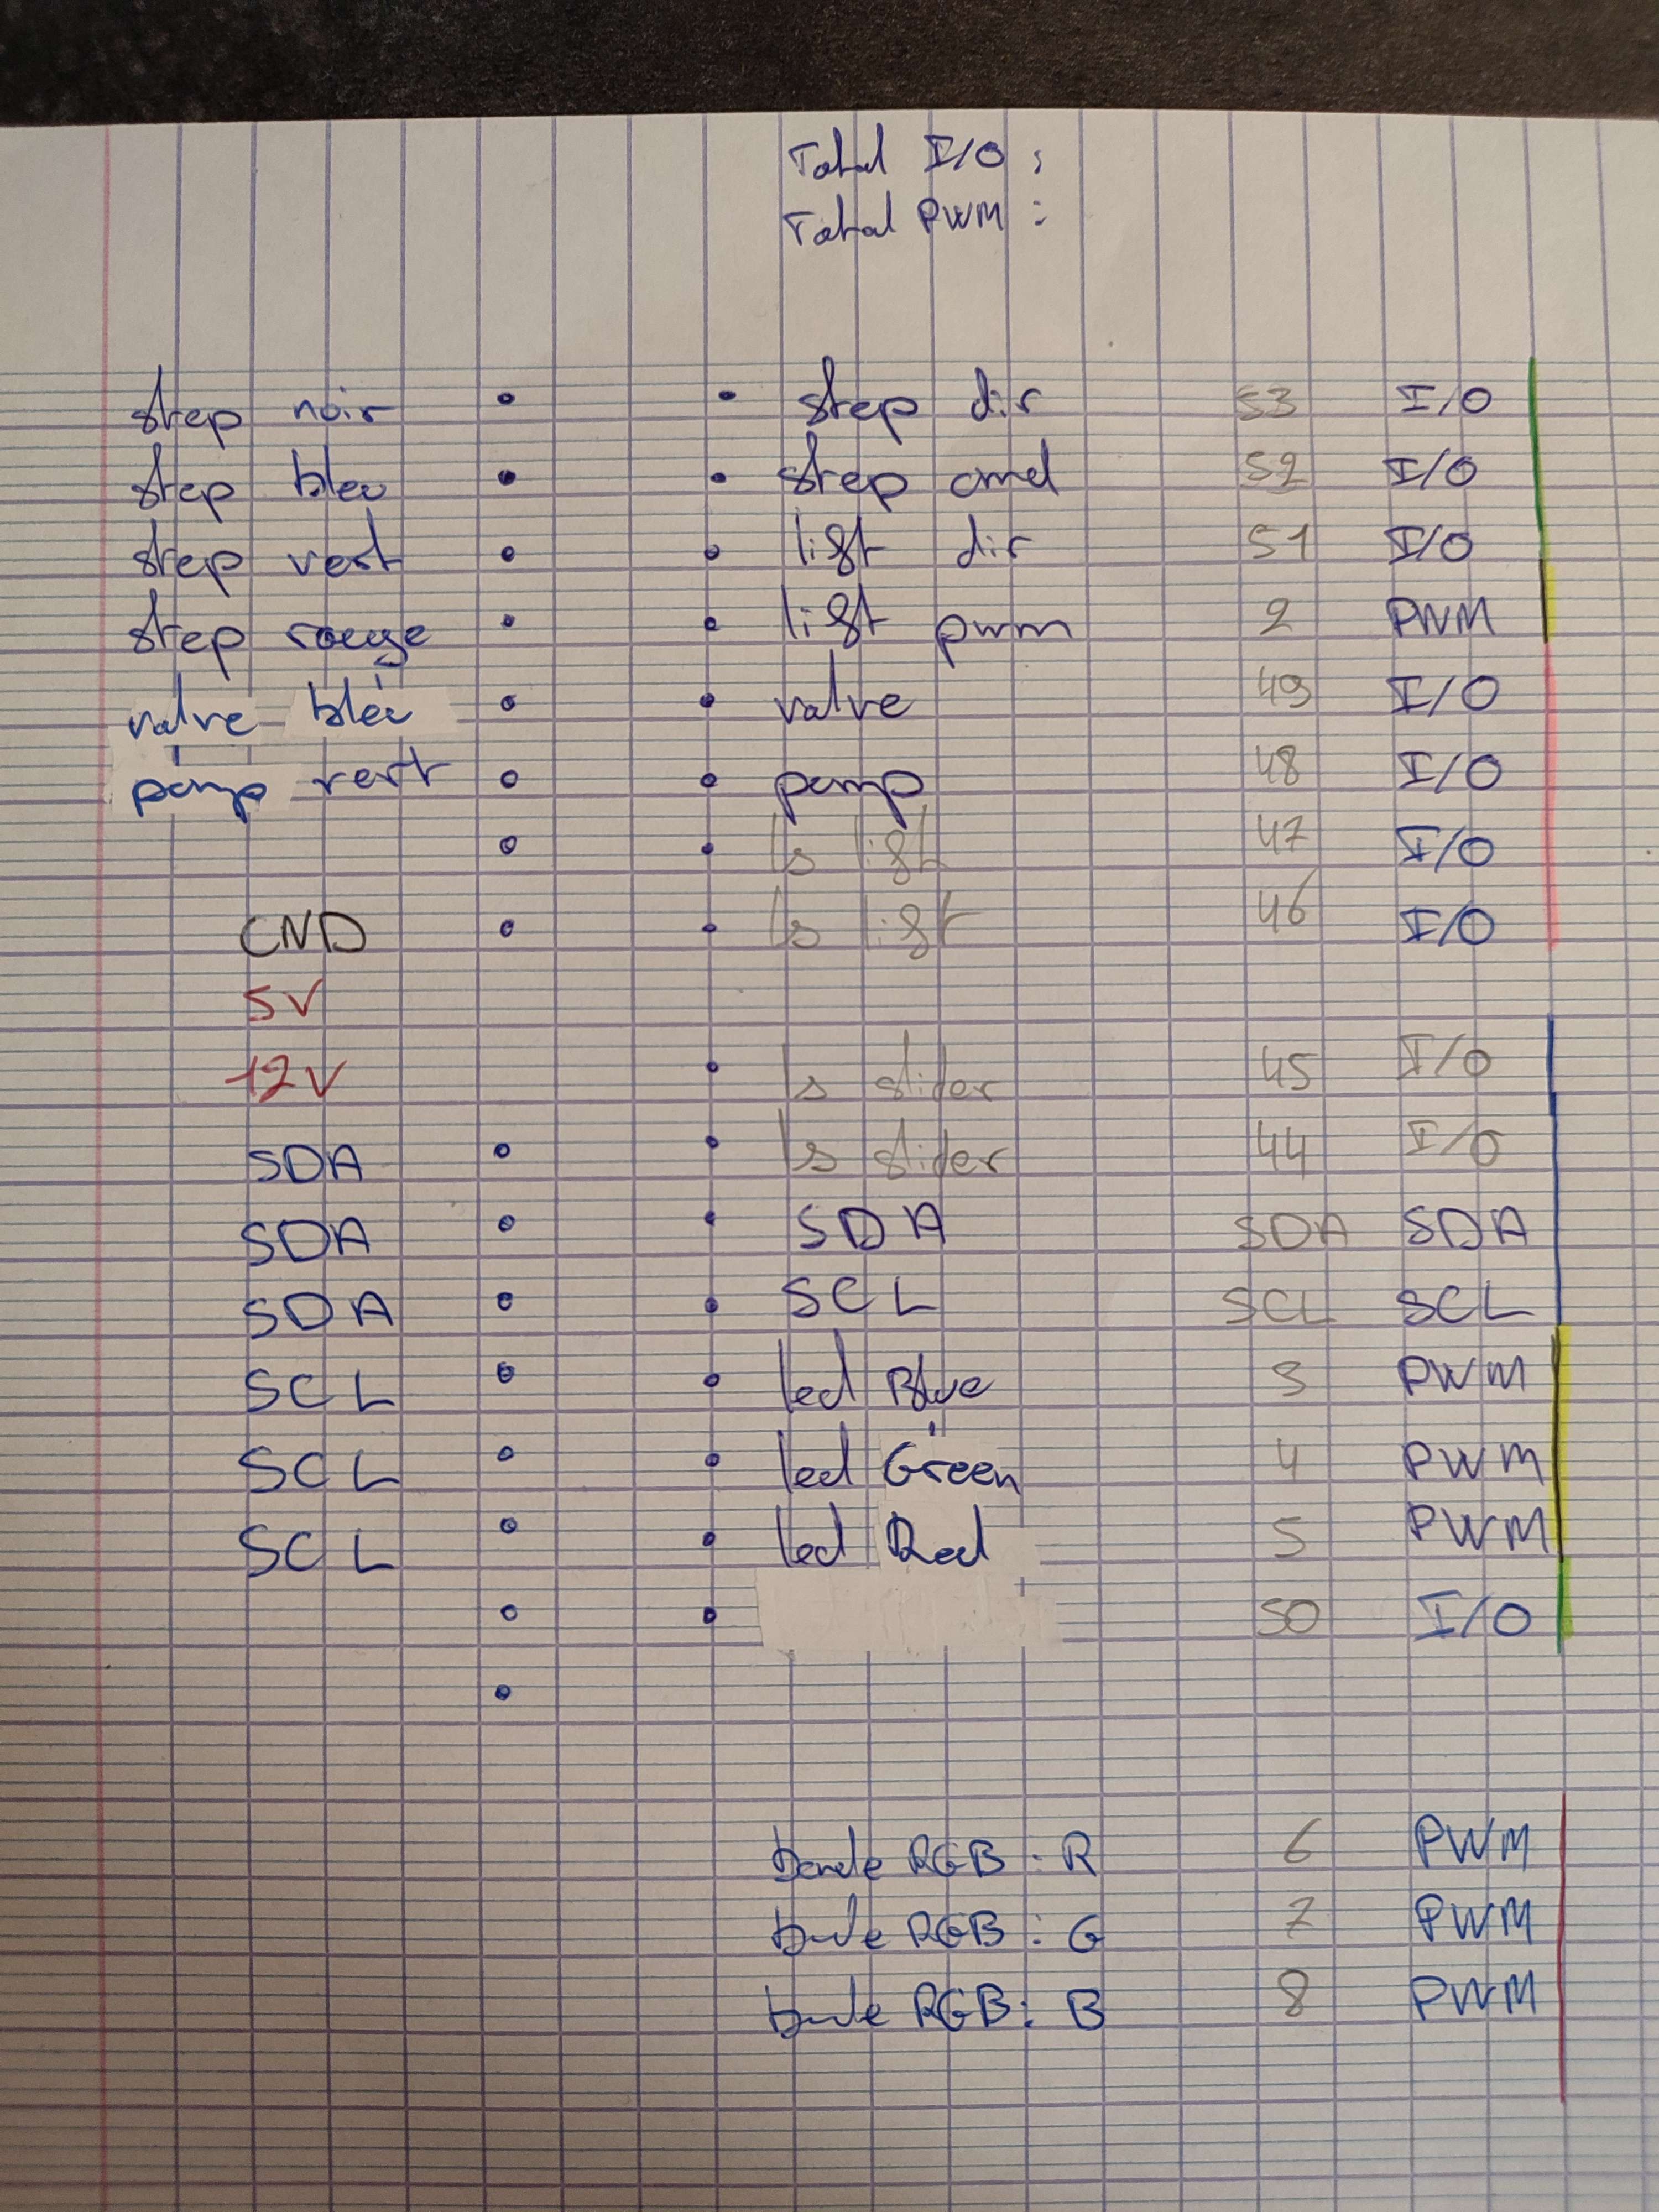 Total I/O :
Total PWM :
step noir step dir 53 I/O
step bleu step cmd 52 I/O
step vert lift dir 51 I/O
step rouge lift pwm 2 PWM
valve bleu valve 49 I/O
pomp vert pomp 48 I/O
ls lift 47 I/O
GND ls lift 46 I/O
5V
12V ls slider 45 I/O
SDA ls slider 44 I/O
SDA SDA SDA SDA
SDA SCL SCL SCL
SCL led Blue 3 PWM
SCL led Green 4 PWM
SCL led Red 5 PWM
50 I/O
bande RGB : R 6 PWM
bande RGB : G 7 PWM
bande RGB : B 8 PWM